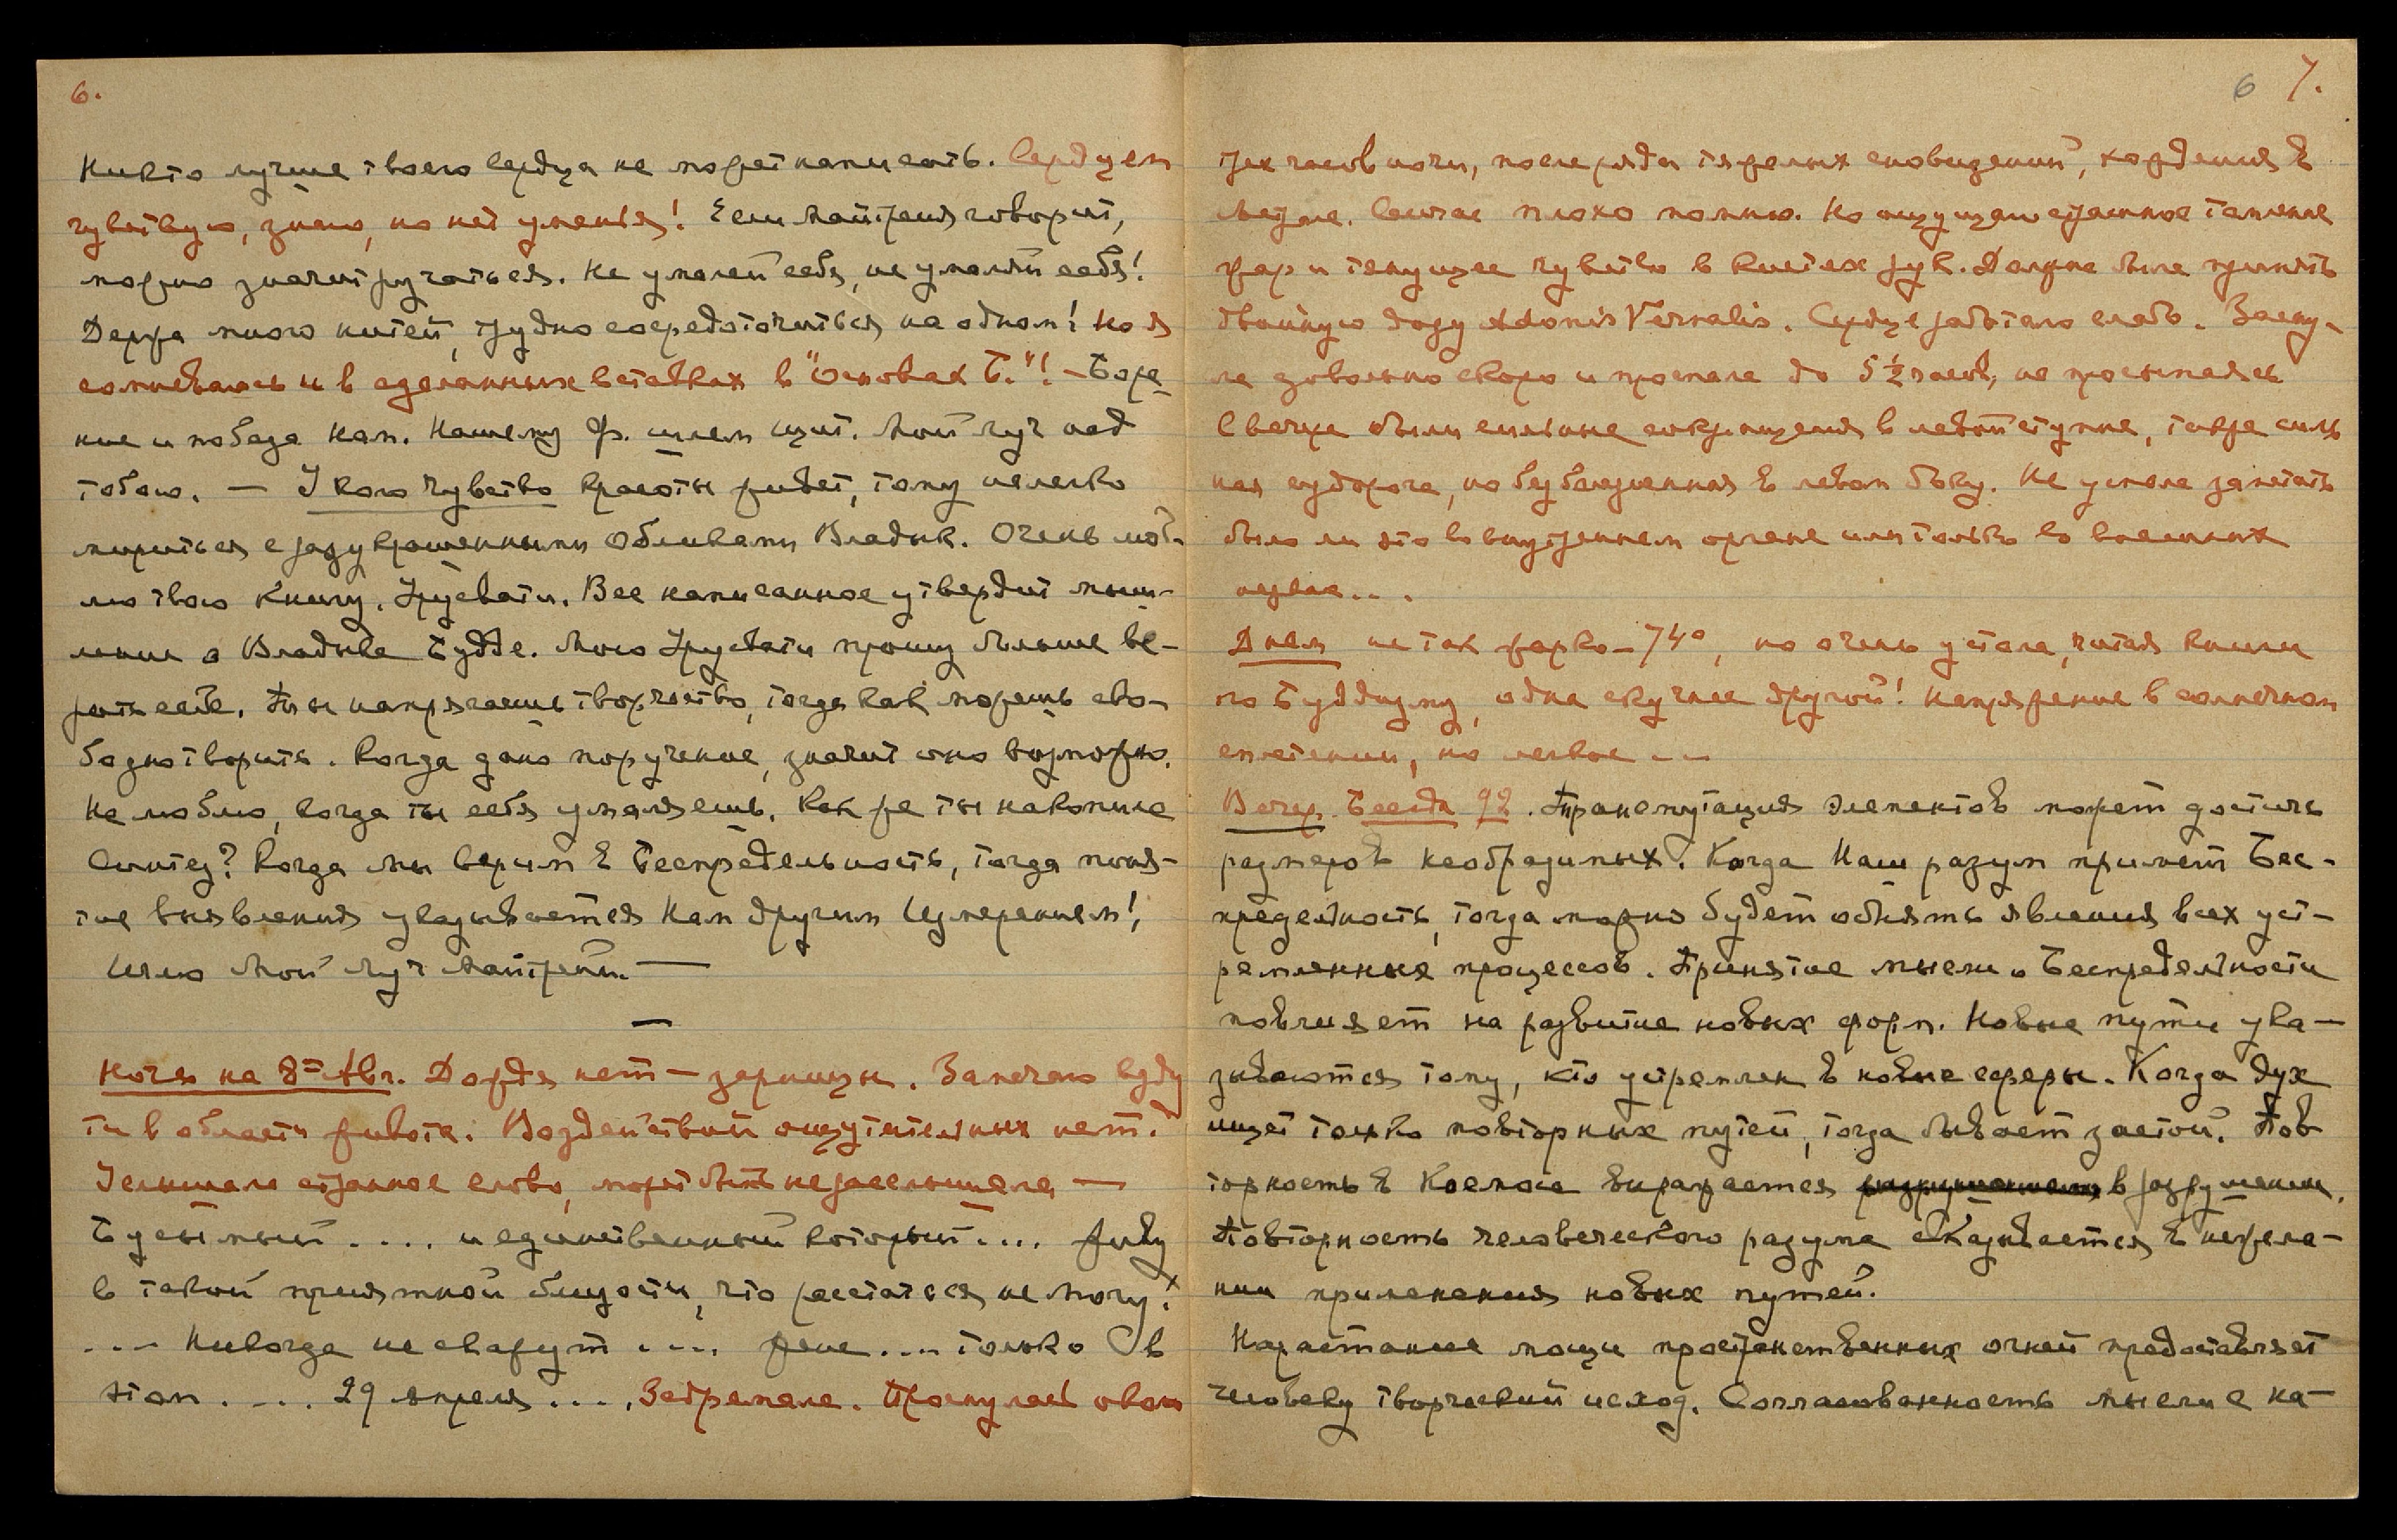 6.
Никто лучше твоего сердца не может написать. Сердцем
чувствую, знаю, но нет уменья! Если Майтрейя говорит,
можно значит ручаться. Не умаляй себя, не умаляй себя!
Держа много нитей, трудно сосредоточиться на одном! Но я
сомневаюсь и в сделанных вставках в "Основах Б."! – Боре
ние и победа нам. Нашему Ф. шлем щит. Мой луч над
тобою. — У кого чувство красоты живет, тому нелегко
мириться с разукрашенными Обликами Владык. Очень люб-
лю твою книгу, Урусвати. Все написанное утвердит мыш-
ление о Владыке Будде. Мою Урусвати прошу больше ве-
рить себе. Ты напрягаешь творчество, тогда как можешь сво-
бодно творить. Когда дано поручение, значит оно возможно.
Не люблю, когда ты себя умаляешь. Как же ты накопила
Синтез? Когда мы верим в Беспредельность, тогда поня-
тие выявления указывается Нам другим Измерением!,
Шлю Мой луч Майтрейи. —
—
Ночь на 8ое Авг. Дождя нет – зарницы. Замечаю вздут
ти в области живота. Воздействий ощутительных нет.
Услышала странное слово, может быть нерасслышала, —
Будымный .... и единственный который .... живу
в такой приятной близости, что расстаться не могу!
... Никогда не скажут .... жене .... только в
этом .... 29 апреля .... Задремала. Проснулась около
6 7.
трех часов ночи, после ряда тяжелых сновидений, хождения в
Метале. Сейчас плохо помню. Но ощущаю странное томление
жар и тянущее чувство в кистях рук. Должна была принять
двойную дозу Adonis Vernalis. Сердце работало слабо. Засну-
ла довольно скоро и проспала до 5½ часов, не просыпаясь
С вечера были сильные сокращения в левой ступне, также силь
ная судорога, но безболезненная в левом боку. Не успела заметить
было ли это во внутреннем органе или только во внешних
нервах...
Днем не так жарко – 74°, но очень устала, читая книги
по Буддизму, одна скучнее другой! Напряжение в солнечном
сплетении, но легкое ...
Вечер. Беседа 92. Трансмутация элементов может достичь
размеров необразимых. Когда Наш разум примет Бес-
предельность, тогда можно будет обнять явления всех уст-
ремленных процессов. Принятие мысли о Беспредельности
повлияет на развитие новых форм. Новые пути ука-
зываются тому, кто устремлен в новые сферы. Когда дух
ищет только повторных путей, тогда бывает застой. Пов
торность в Космосе выражается в разрушении.
Повторность человеческого разума сказывается в нежела-
нии применения новых путей.
Нарастание мощи пространственных огней предоставляет
человеку творческий исход. Согласованность мысли с на-